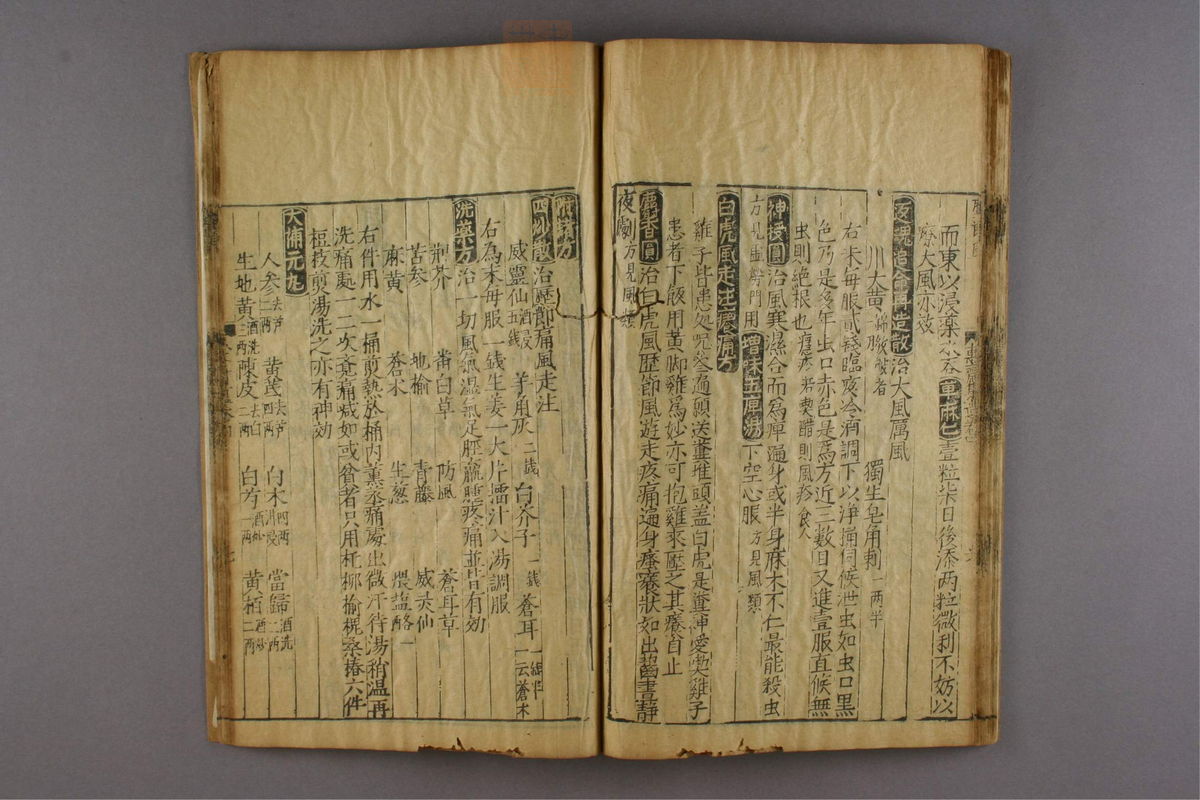 而東以浸藥水吞萆麻仁壹粒柒日後添两粒微利不妨以
療大風亦效
夜魂追命再造散治大風厲風
川大黄 獨生皂角刺一两半
右末每服貳錢臨夜冷酒調下以淨桶伺候泄虫如虫口黑
色乃是多年虫口赤色是爲方近三數日又進壹服直候無
虫則絕根也
神授圓治風寒濕合而爲痺遍身或半身麻木不仁最能殺虫
方見虚勞門用增味五痺湯下空心服方見風類
白虎風走注癢痛方
雞子皆患处咒叁遍頭送糞堆頭盖白虎是糞神愛喫雞子
患者下飯用黄脚雞爲妙亦可抱雞來壓之其癢自止
麝香圓治白虎風歷節風遊走疼痛遍身癢癢狀如出齧晝静
夜劇方見風類
附諸方
四妙散治歷節痛風走注
威靈仙酒浸五錢 羊角灰二錢 白芥子一錢 蒼耳一錢半一云蒼术
右為末每服一錢生姜一大片擂汁入湯調服
洗藥方治一切風氣濕氣足脛虚腫疼痛並皆有効
荆芥 畨白草 防風 蒼耳草
苦参 地榆 青藤 威灵仙
麻黄 蒼术 生葱 猥塩酪一
右件用水一桶剪熱於桶内薰蒸痛處出微汗待湯稍温再
洗痛處一二次竟痛减如或貧者只用杔柳榆槐桑椿六件
短枝剪湯洗之亦有神効
大補元丸
人参去芦二两 黄芪去芦四两 白术四两 當歸酒洗二两
生地黄酒洗二两 陳皮去白二两 白芍酒炒一两 黄栢酒炒二两